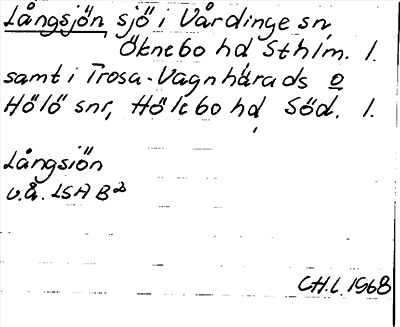 Långsjön sjö i Vårdinge sn,
Öknebo hd Sthlm. l.
samt i Trosa-Vagnhärads o
Hölö snr, Hölebo hd Söd. l.
Långsjön
u.å. LSA B2
CH.L. 1968